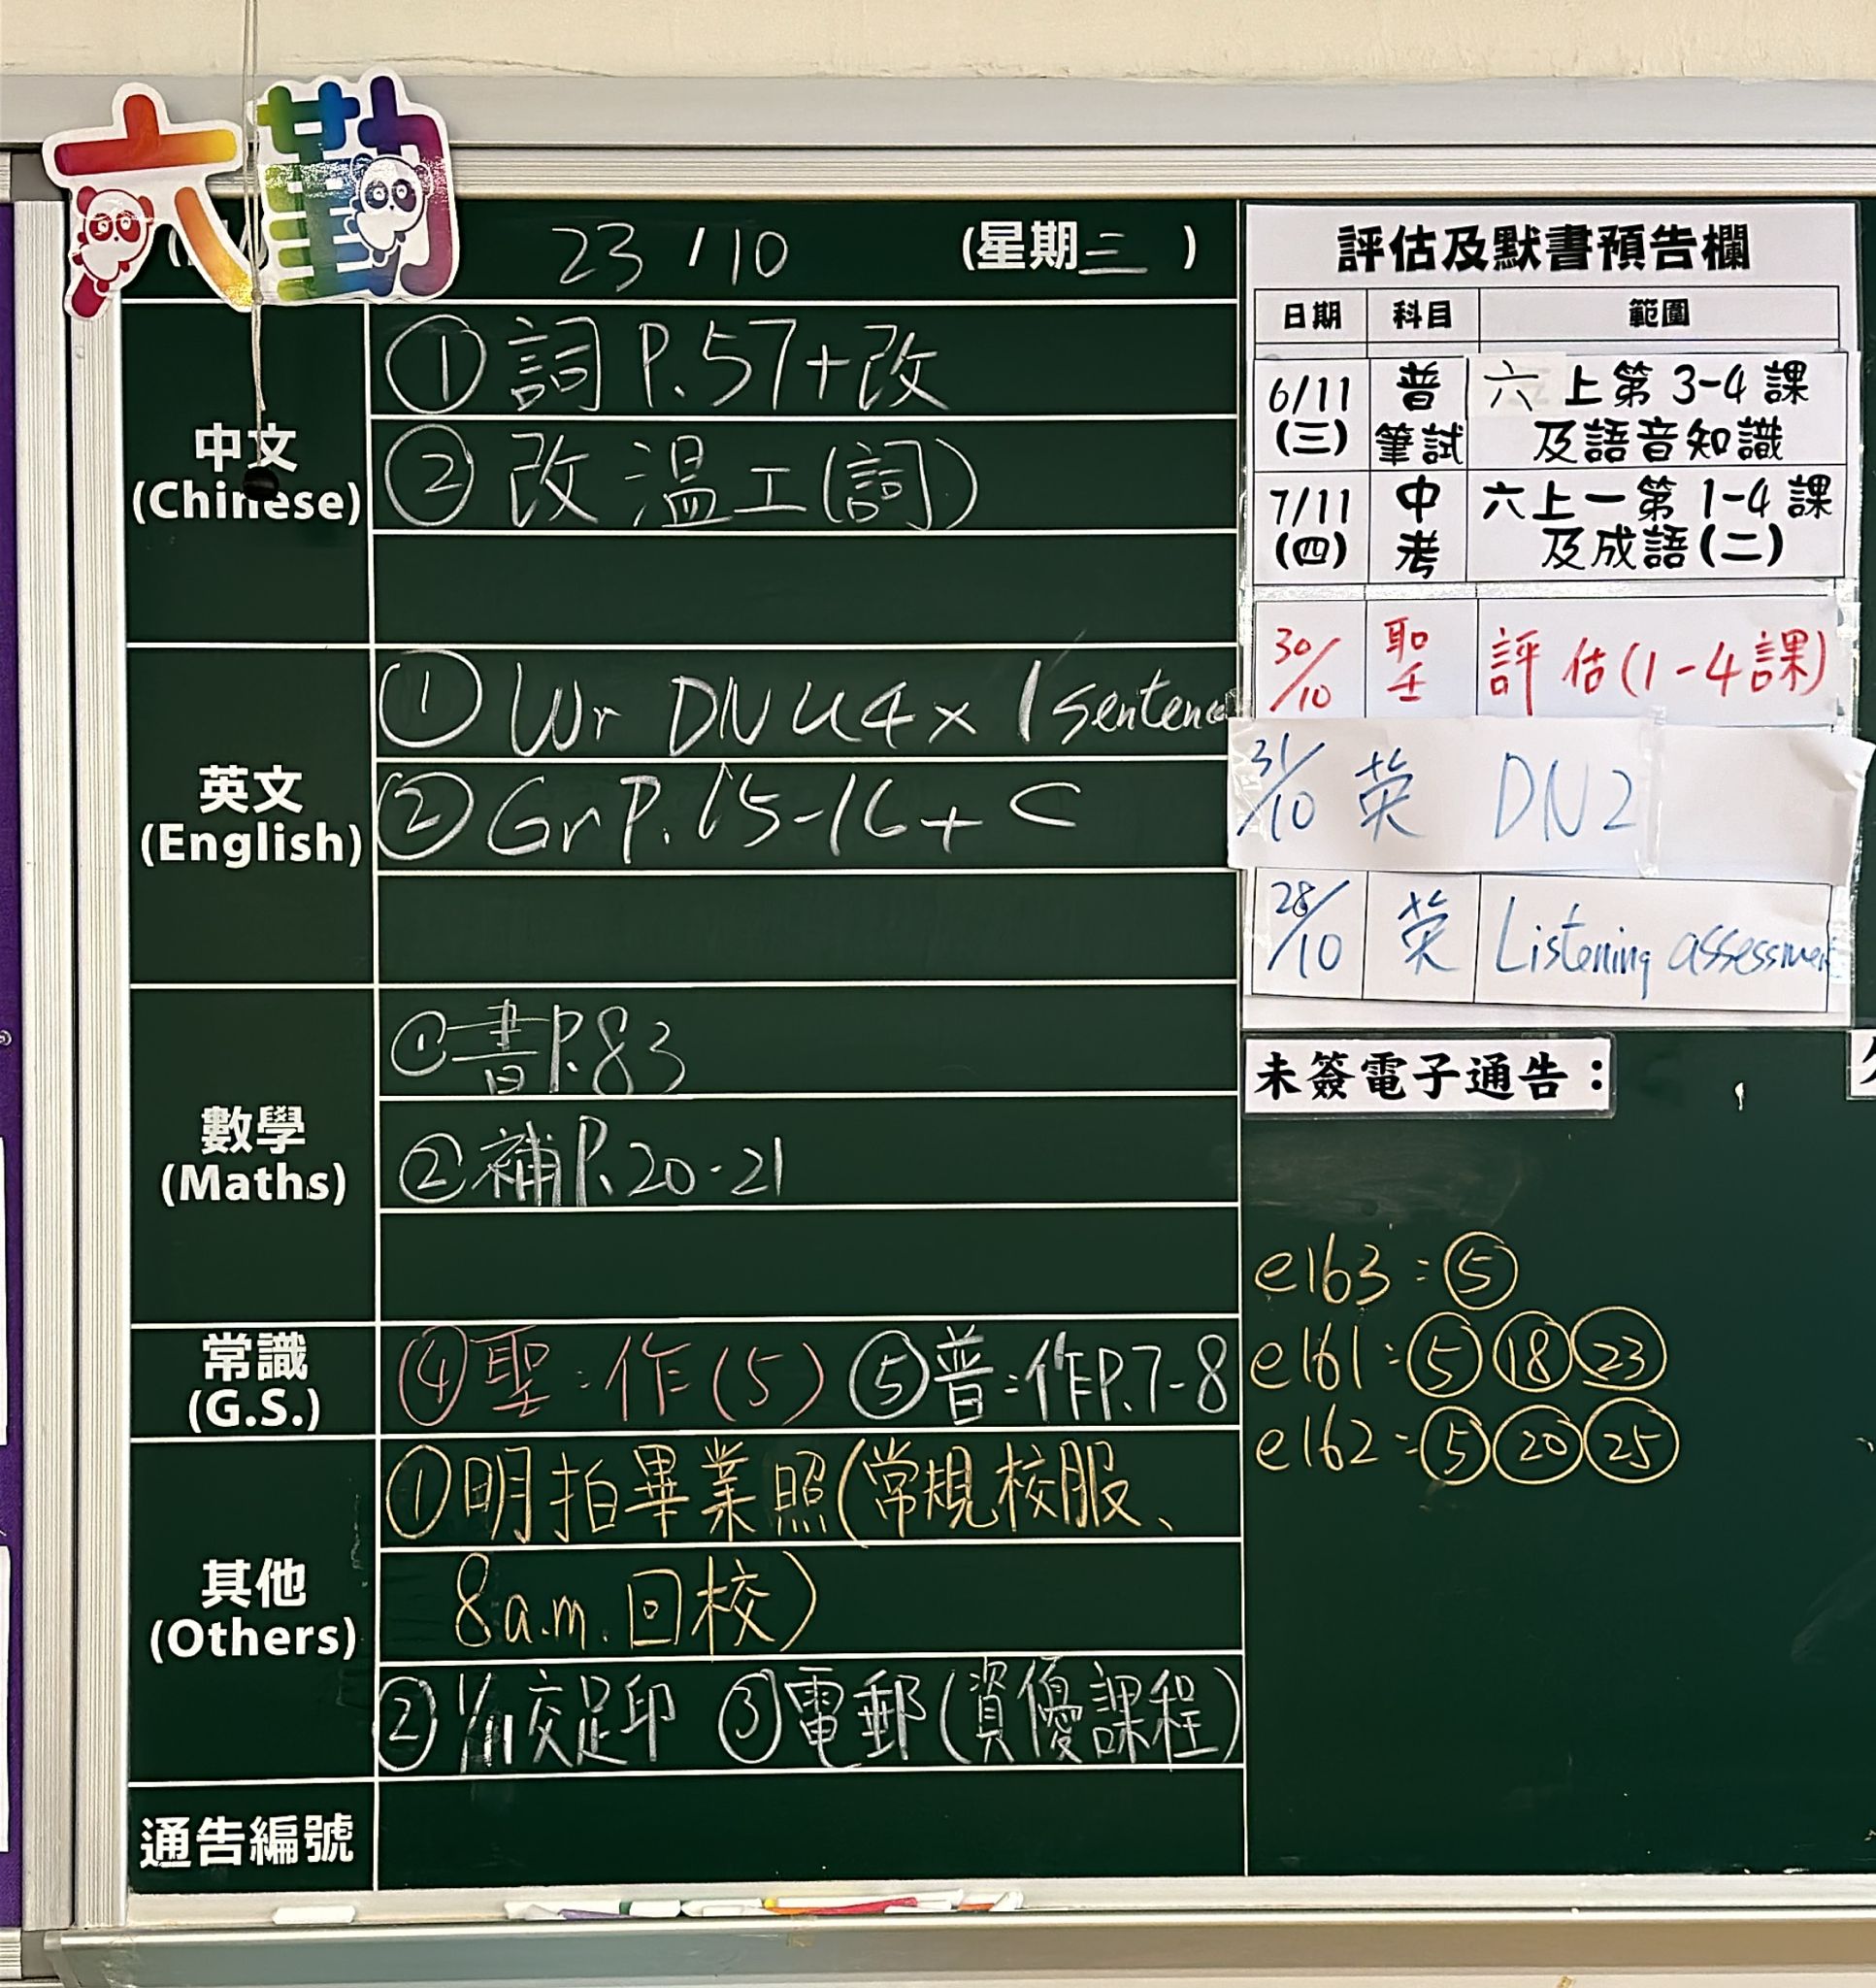 六勤
23/10 (星期三)
中文
(Chinese)
① 詞 P.57+改
② 改 溫工(詞)
英文
(English)
① Wr DN U4 × 1 sentence
② Gr P.15-16 + C
數學
(Maths)
① 書P.83
② 補P.20-21
常識
(G.S.)
④ 聖:作(5) ⑤ 普:作P.7-8
其他
(Others)
① 明拍畢業照(常規校服、
8a.m.回校)
② 1/11交足印 ③ 電郵(資優課程)
通告編號
評估及默書預告欄
日期 科目 範圍
6/11 (三) 普 筆試 六上第3-4課
及語音知識
7/11 (四) 中 考 六上一第1-4課
及成語(二)
30/10 聖 評估(1-4課)
31/10 英 DN2
28/10 英 Listening assessmen
未簽電子通告：
e163:⑤
e161:⑤⑱㉓
e162:⑤⑳㉕